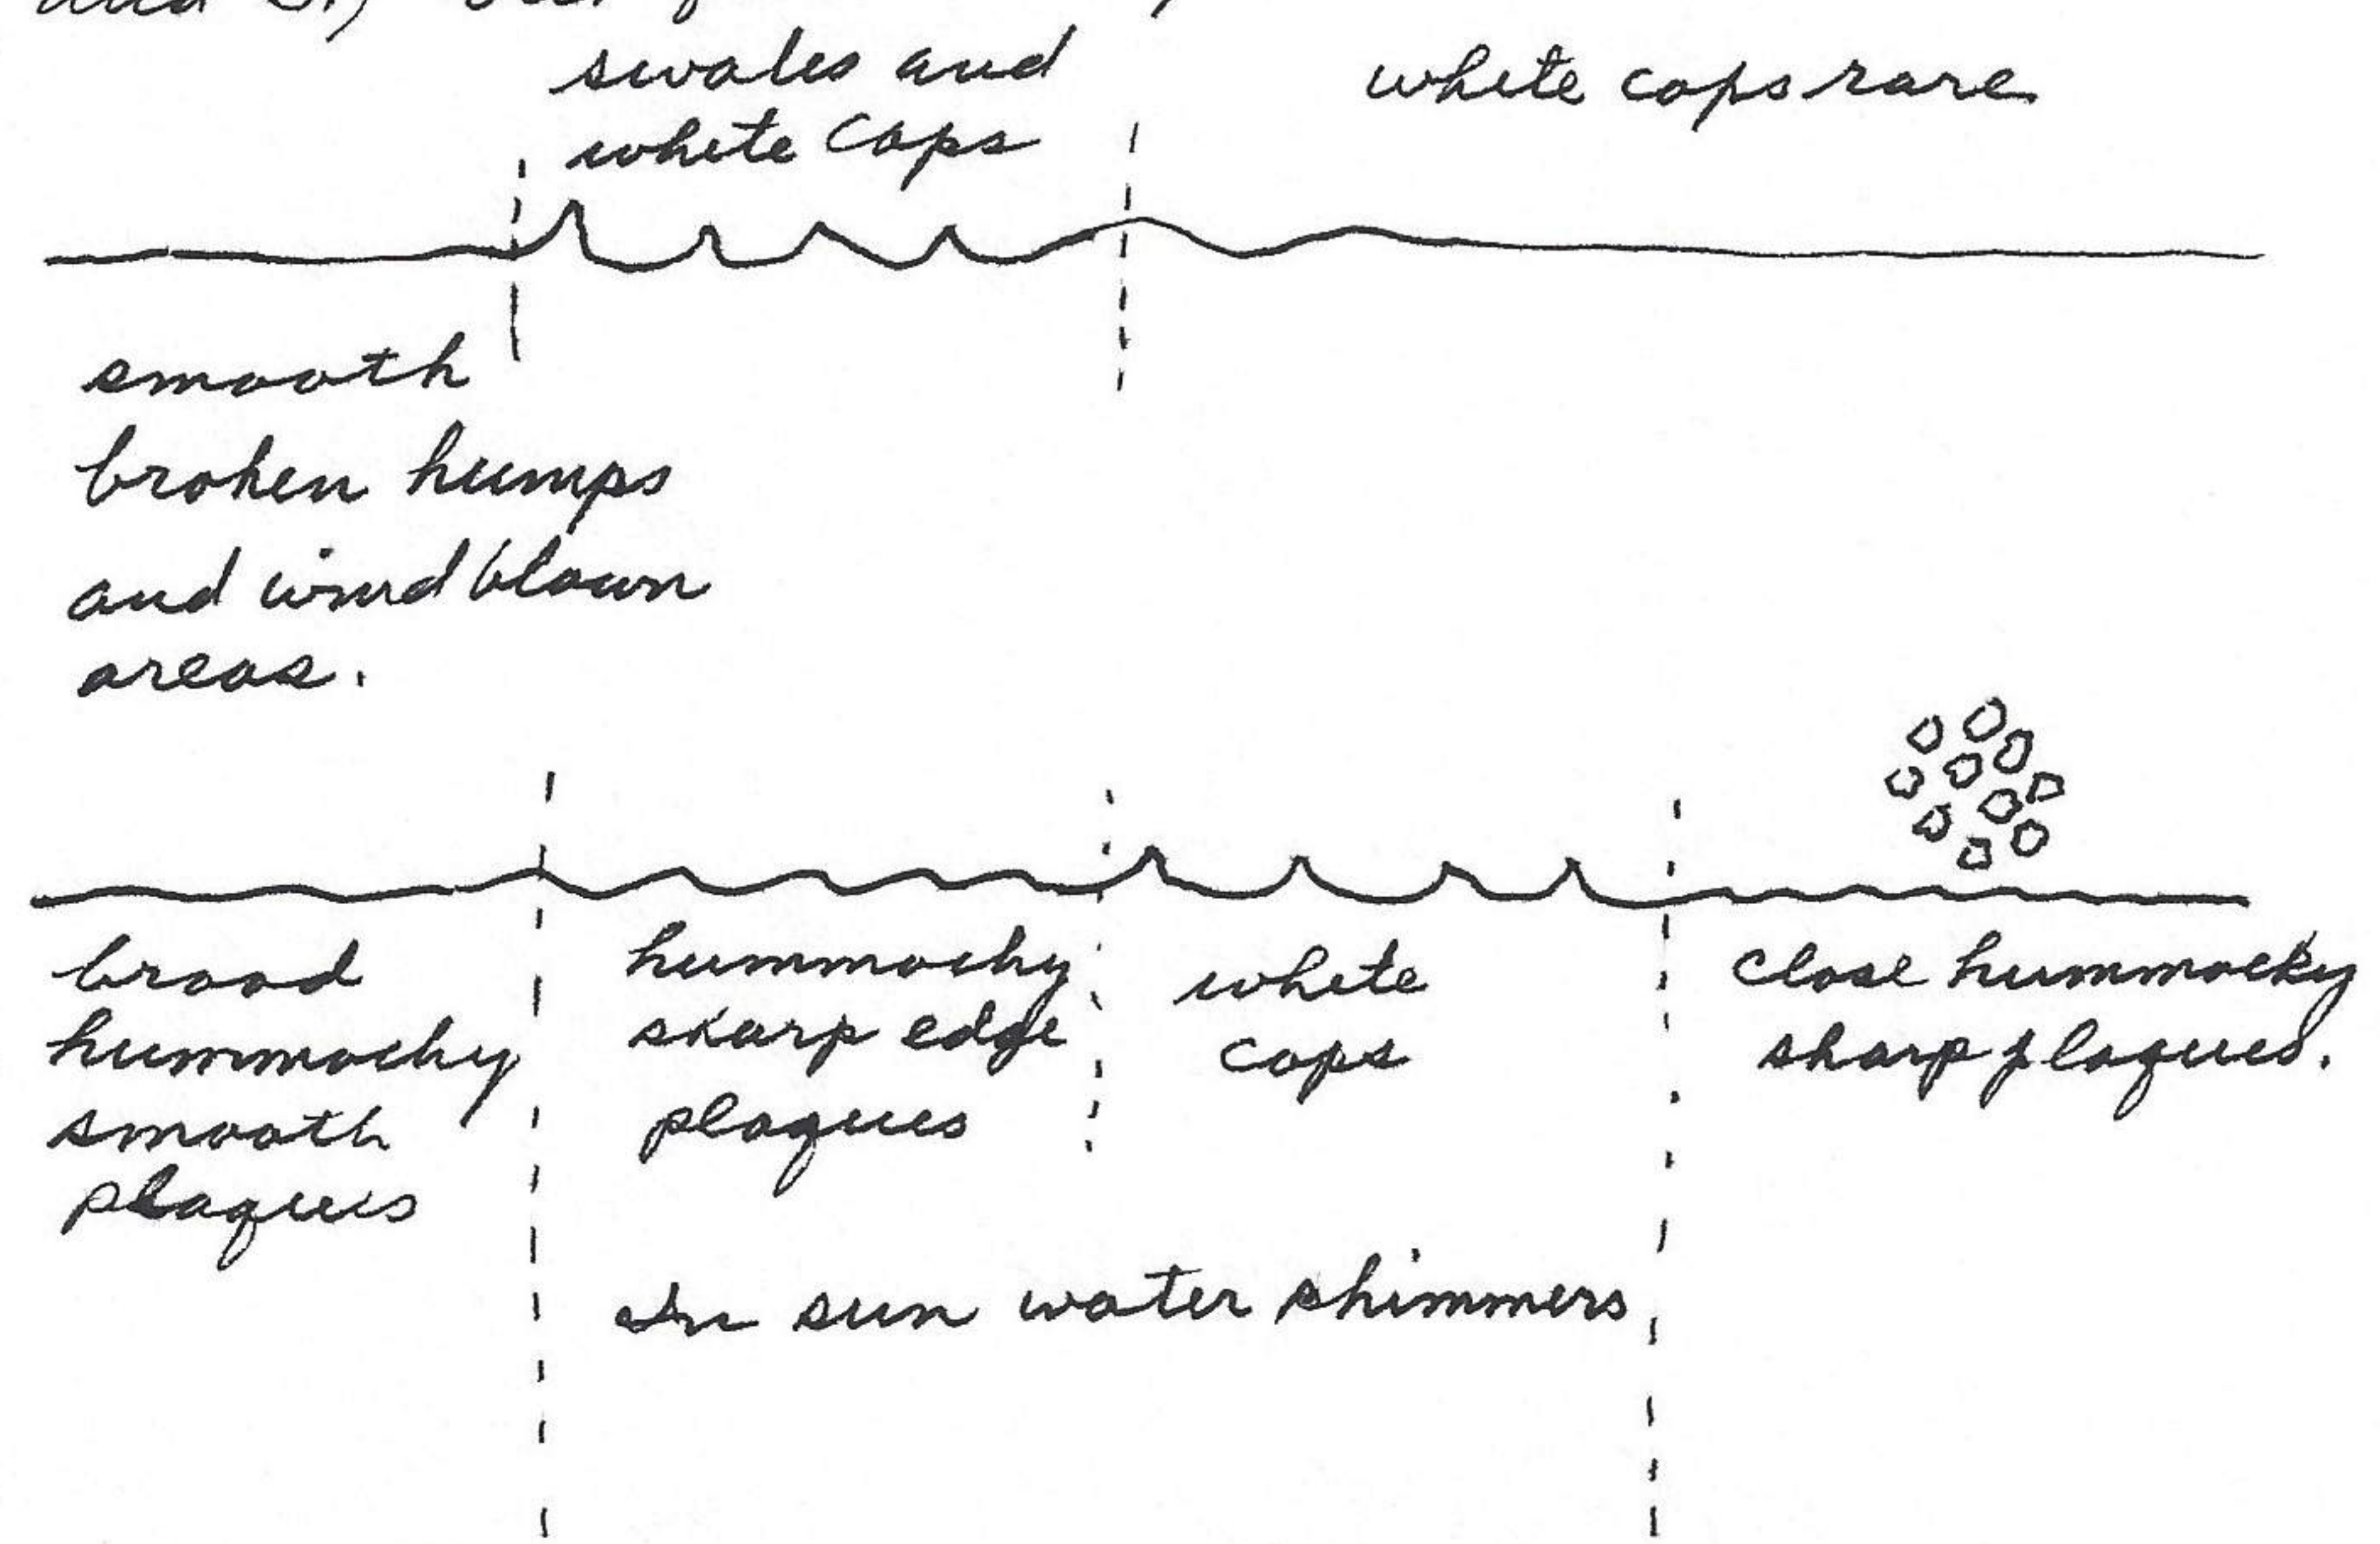 and
swales and
white caps
white caps rare
smooth
broken humps
and wind blown
areas.
broad
hummocky
smooth
plaques
hummocky
sharp edge
plaques
white
caps
close hummocky
sharp plaques.
In sun water shimmers